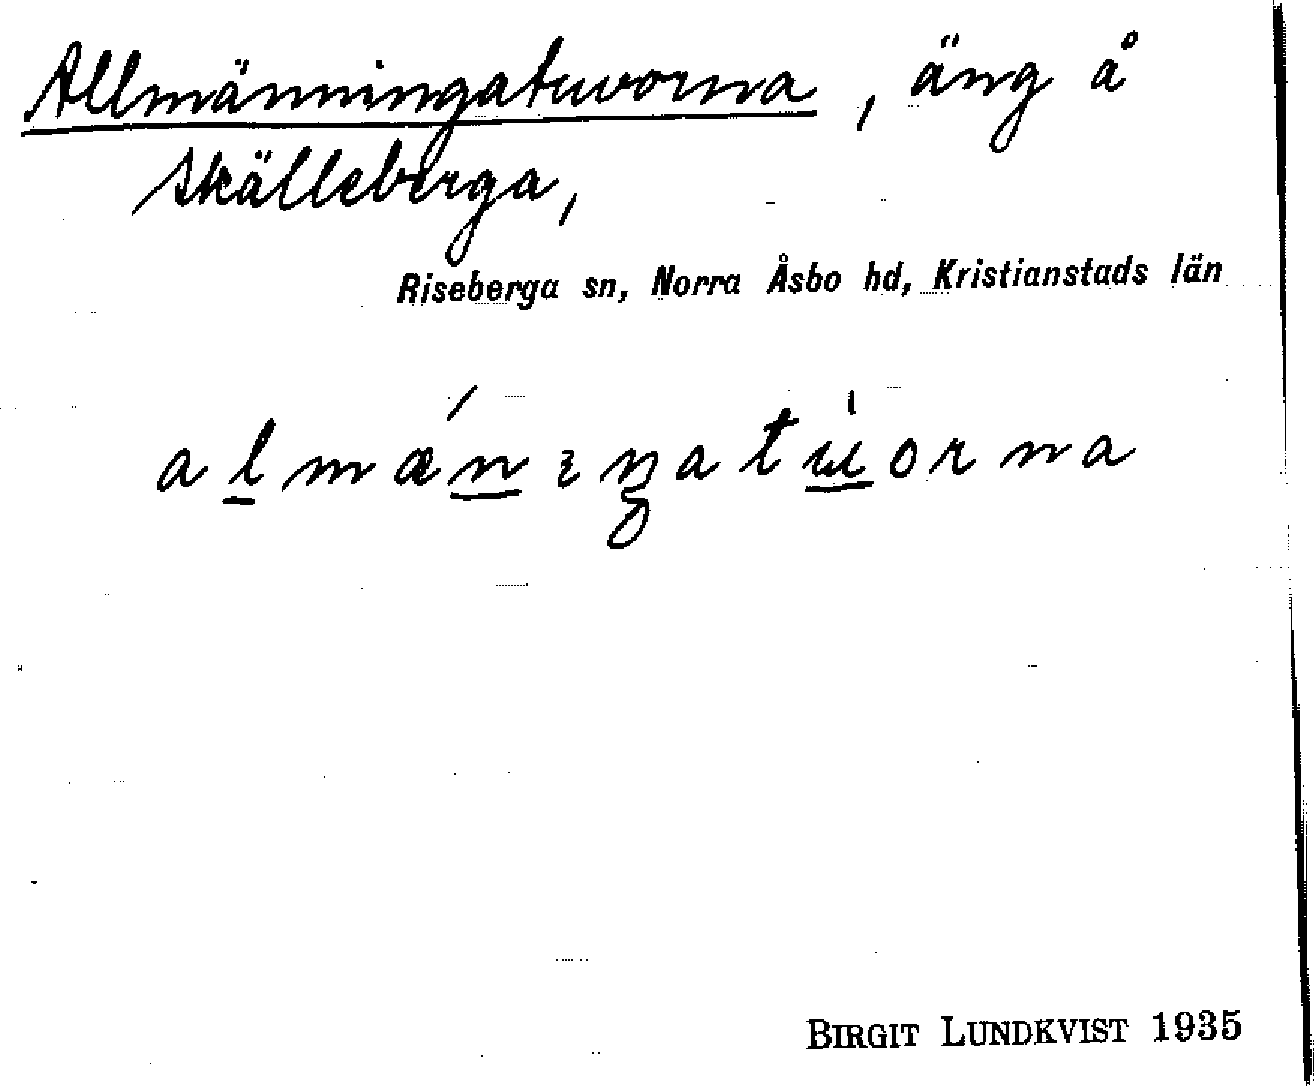 Allmänningatuvorna, äng å
Skälleberga,
Riseberga sn, Norra Åsbo hd, Kristianstads län
almǽnıŋatúorna
BIRGIT LUNDKVIST 1935